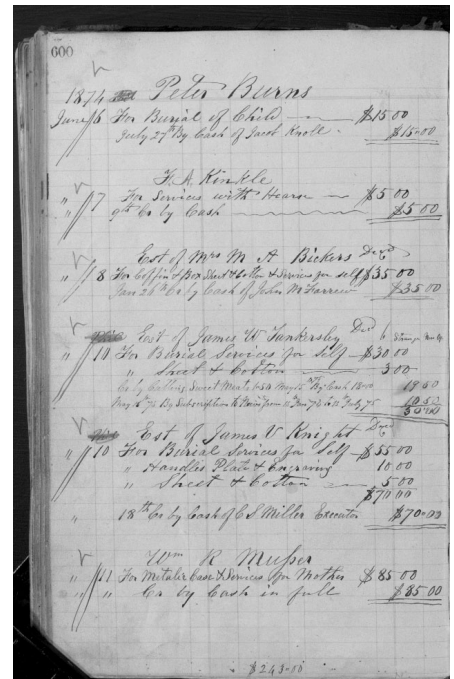 600
1874 Peter Burns
June 6 For Burial of Child $15 00
July 27th By Cash of Jacob Knoll $15-00
F. A. Kinkle
" 7 For Services with Hearse $5 00
" 9th Cr by Cash $5 00
Est of Mrs M A Bickers Decd
" 8 For Coffin & Box Sheet & Cotton & Services for self $35 00
Jan 26th Cr by Cash of John McFarren $35 00
Est of James W Tankersley Decd
" 10 For Burial Services for Self $30 00
" Sheet & Cotton 3 00
Cr by Cash 18 00
By Subscription July 75
Est of James V Knight Decd
" 10 For Burial Services for Self $55 00
" Handles Plate & Engraving 10 00
" Sheet & Cotton 5 00
$70 00
" 18th Cr by Cash of C S Miller Executor $70-00
Wm R Musser
" 11 For Metalic Case & Services for Mother $85 00
" " Cr by Cash in full $85 00
$243-00